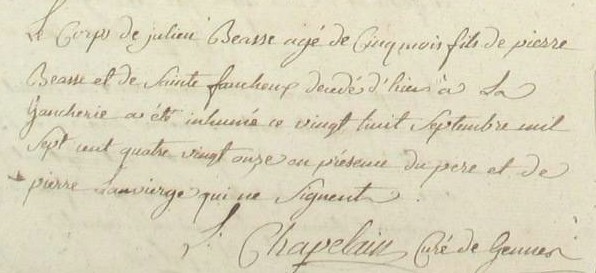 Le Corps de julien Beasse agé de Cinq mois fils de pierre
Beasse et de Sainte faucheux decedé d'hier à La
Gaucherie a été inhumé ce vingt huit Septembre mil
Sept cent quatre vingt onze en présence du pere et de
pierre Lauvierge qui ne Signent
L. Chapelain Curé de Gennes